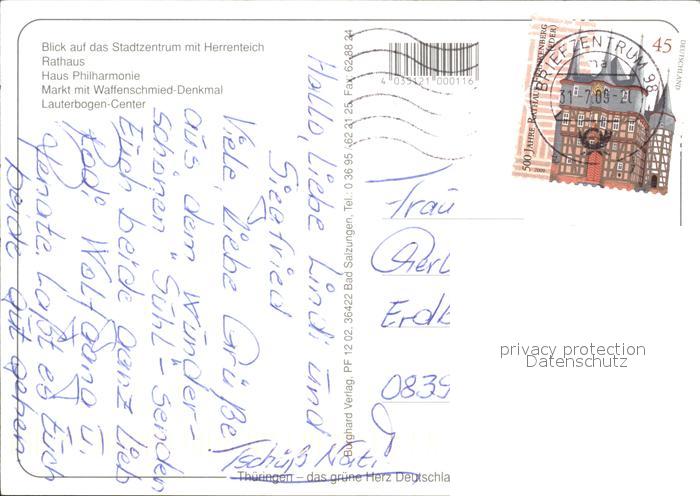 Blick auf das Stadtzentrum mit Herrenteich
Rathaus
Haus Philharmonie
Markt mit Waffenschmied-Denkmal
Lauterbogen-Center
Hallo, liebe Lindi und
Siegfried
Viele, liebe Grüße
aus dem wunder-
schönen "Suhl - senden
Euch beide ganz lieb
Wolfgang u.
Renate. Laßt es Euch
beide gut gehen.
Tschüß
Borghard Verlag, PF 12 02, 36422 Bad Salzungen, Tel.: 0 36 95 / 62 21 25, Fax: 62 88 24
4 035121 000116
Thüringen – das grüne Herz Deutschla
BRIEFZENTRUM 98
31.-7.09-20
500 JAHRE RATHAUS FRANKENBERG (EDER)
45
DEUTSCHLAND
2009
Frau
Gerl
Erdb
0839
privacy protection
Datenschutz